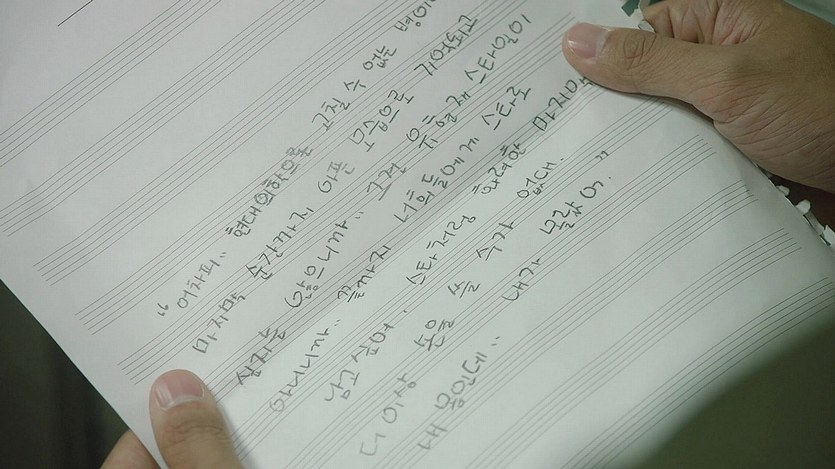 “ 어차피.. 현대의학으론 고칠 수 없는 병이
마지막 순간까지 아픈 모습으로 기억되고
싶지는 않으니까.. 그건 유일재 스타일이
아니니까.. 끝까지 너희들에게 스타로
남고 싶어. 스타처럼 화려한 마지막
더 이상 볼 수가 없대.
내 몸인데.. 내가 몰랐어.”